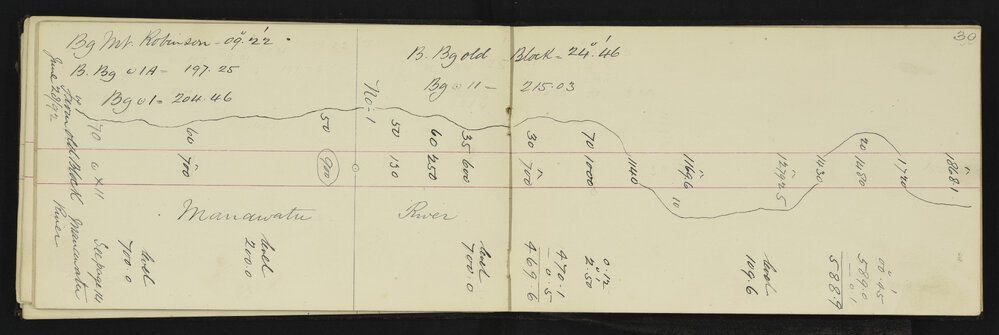 30
Bg Mt. Robinson - 09° 22'
B. Bg ⊙ 1A = 197.25
Bg ⊙ 1 = 204.46
B. Bg old Block = 24° 46'
Bg ⊙ 11 = 215.03
June 28/92
from old Block Manawatu
River
70
60
700
50
900
No-1
50
130
60
250
35
600
30
700
70
1000
1140
1169.6
10
1292.5
1430
20
1480
1720
1868.1
Manawatu River
See page 14
level
700.0
level
200.0
level
700.0
470.1
-0.5
469.6
0.12
2° 50'
level
109.6
00° 45'
589.0
-0.1
588.9